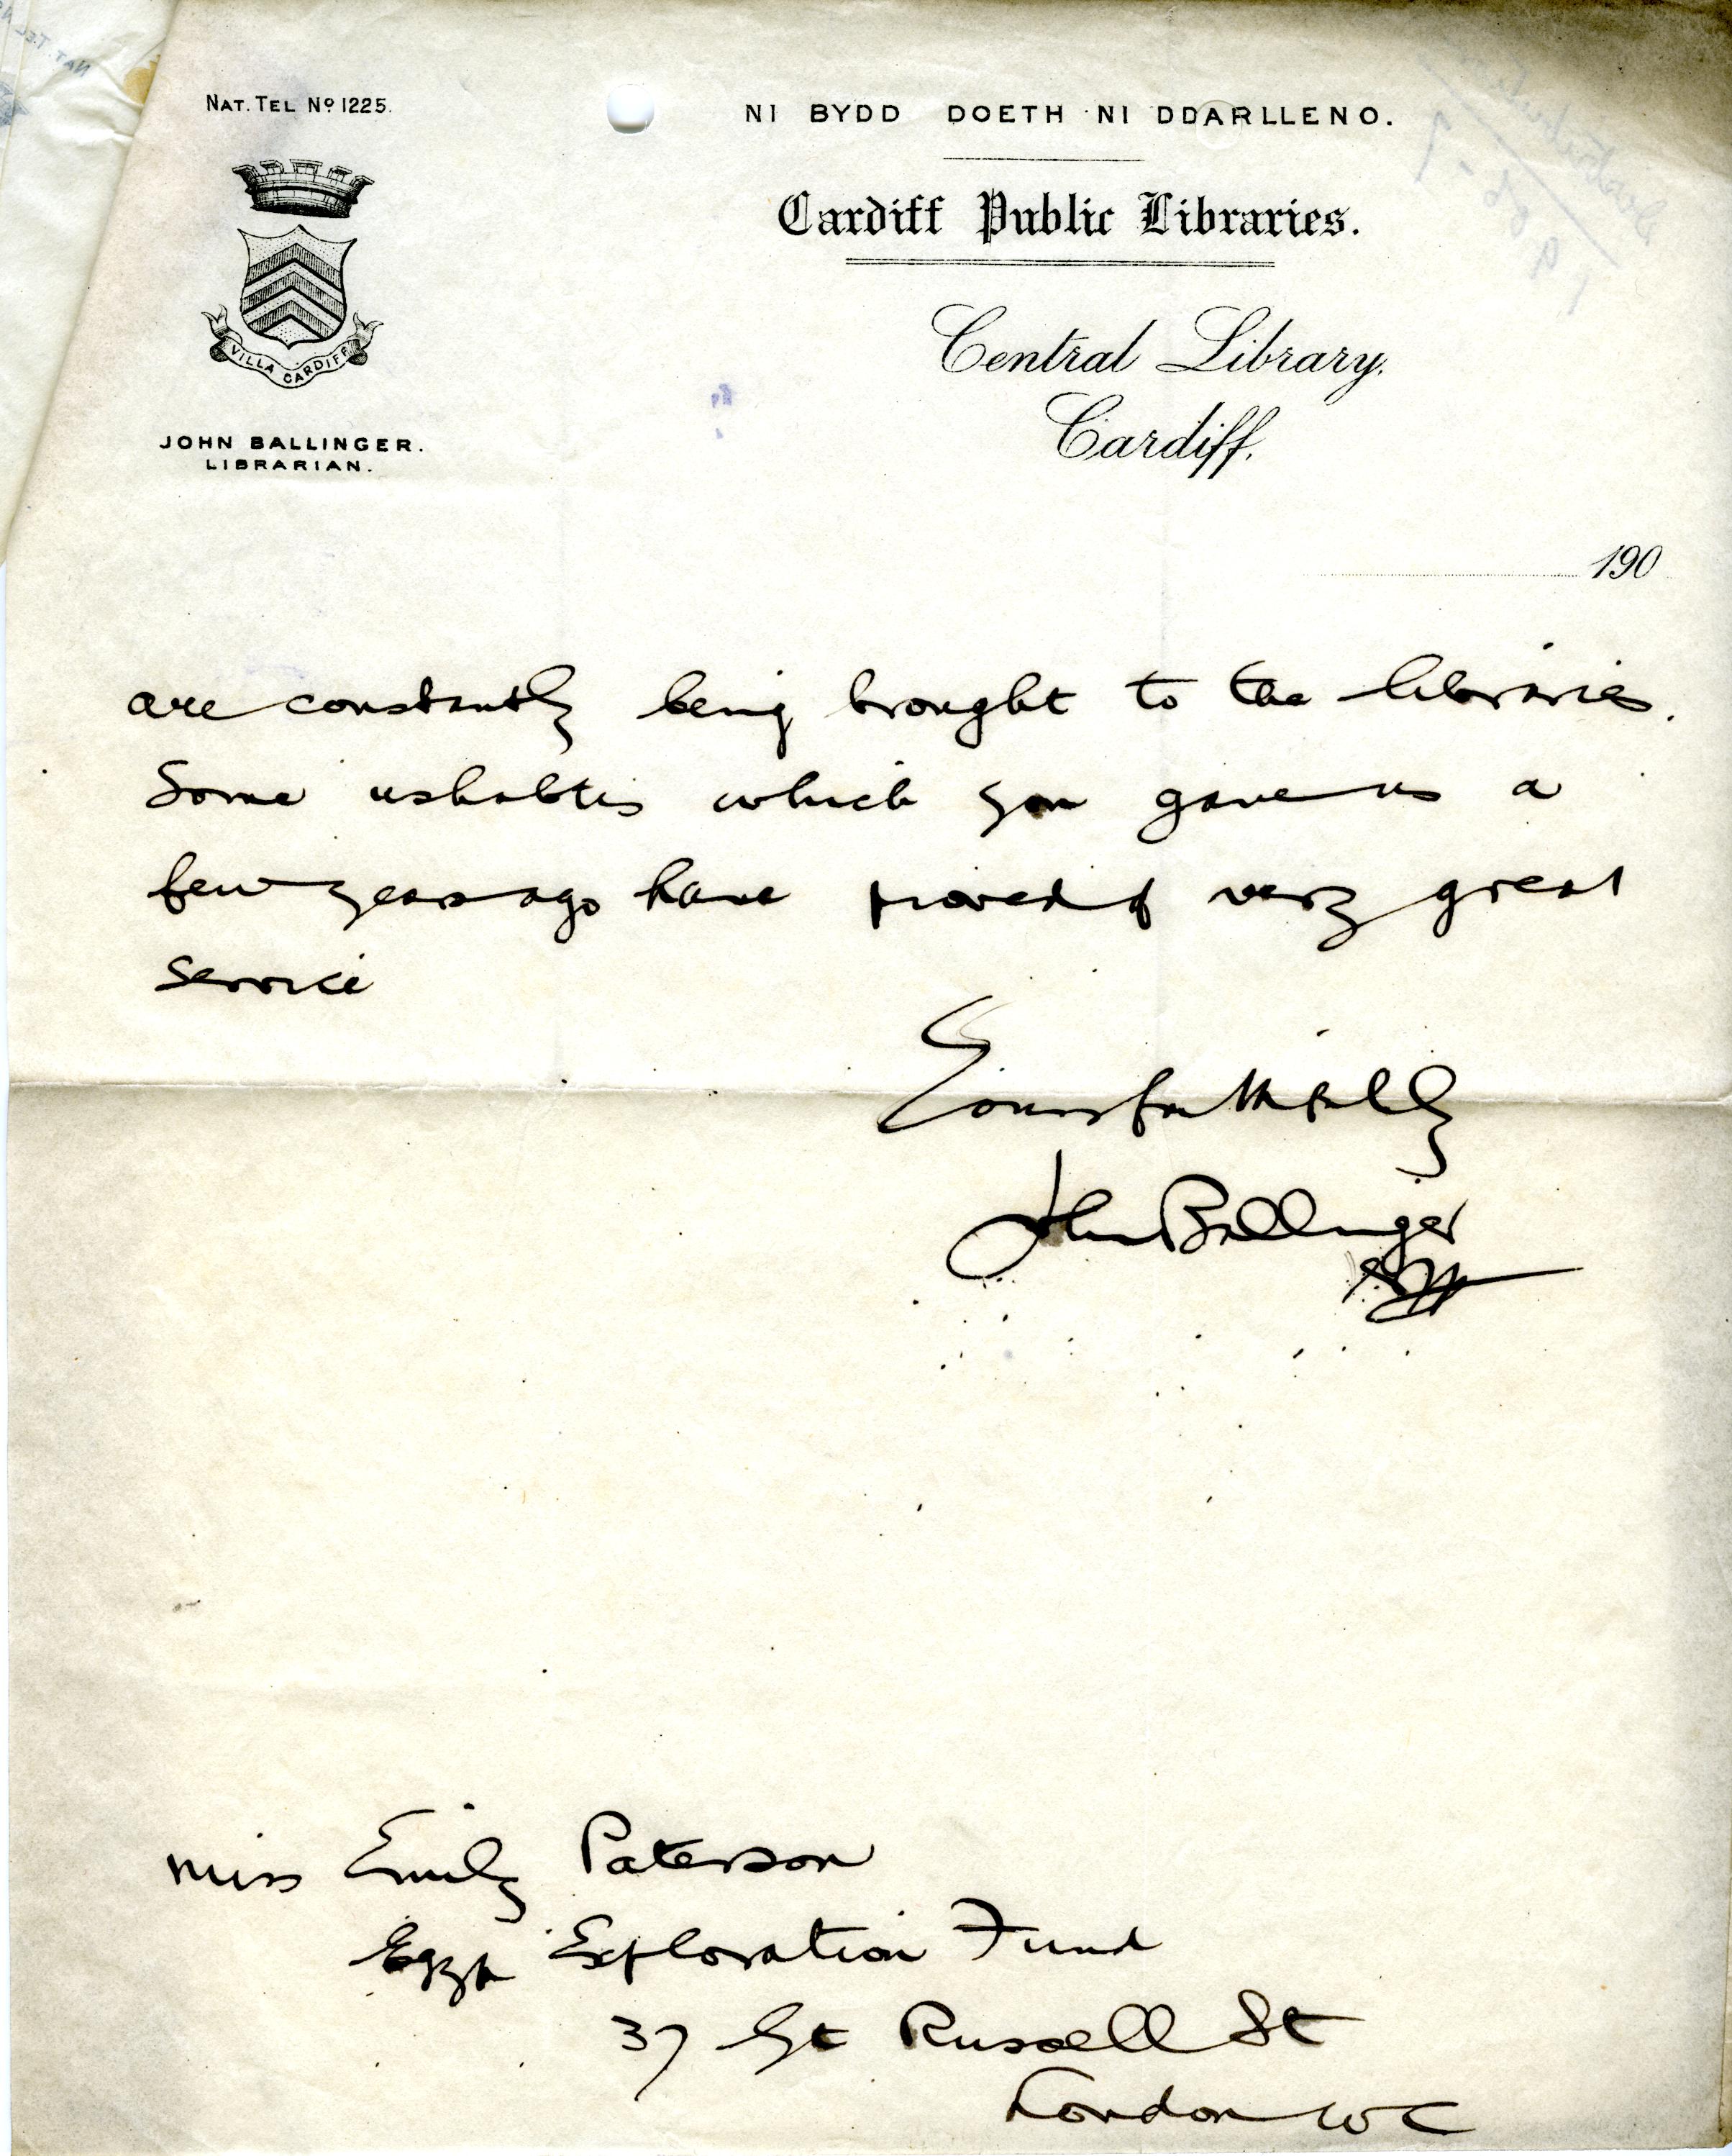 NAT. TEL Nº 1225.
NI BYDD DOETH NI DDARLLENO.
Cardiff Public Libraries.
Central Library.
Cardiff.
VILLA CARDIFF
JOHN BALLINGER.
LIBRARIAN.
190
are constantly being brought to the libraries.
Some ushabtis which you gave us a
few years ago have proved of very great
service
Yours faithfully
John Ballinger
Miss Emily Paterson
Egypt Exploration Fund
37 Gt Russell St
London W C